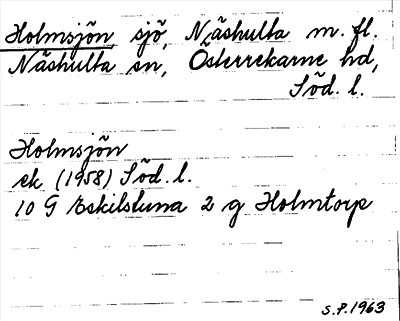 Holmsjön sjö, Näshulta m. fl.
Näshulta sn, Österrekarne hd,
Söd. l.
Holmsjön
ek. (1958) Söd. l.
10 G Eskilstuna 2 g Holmtorp
S.P. 1963